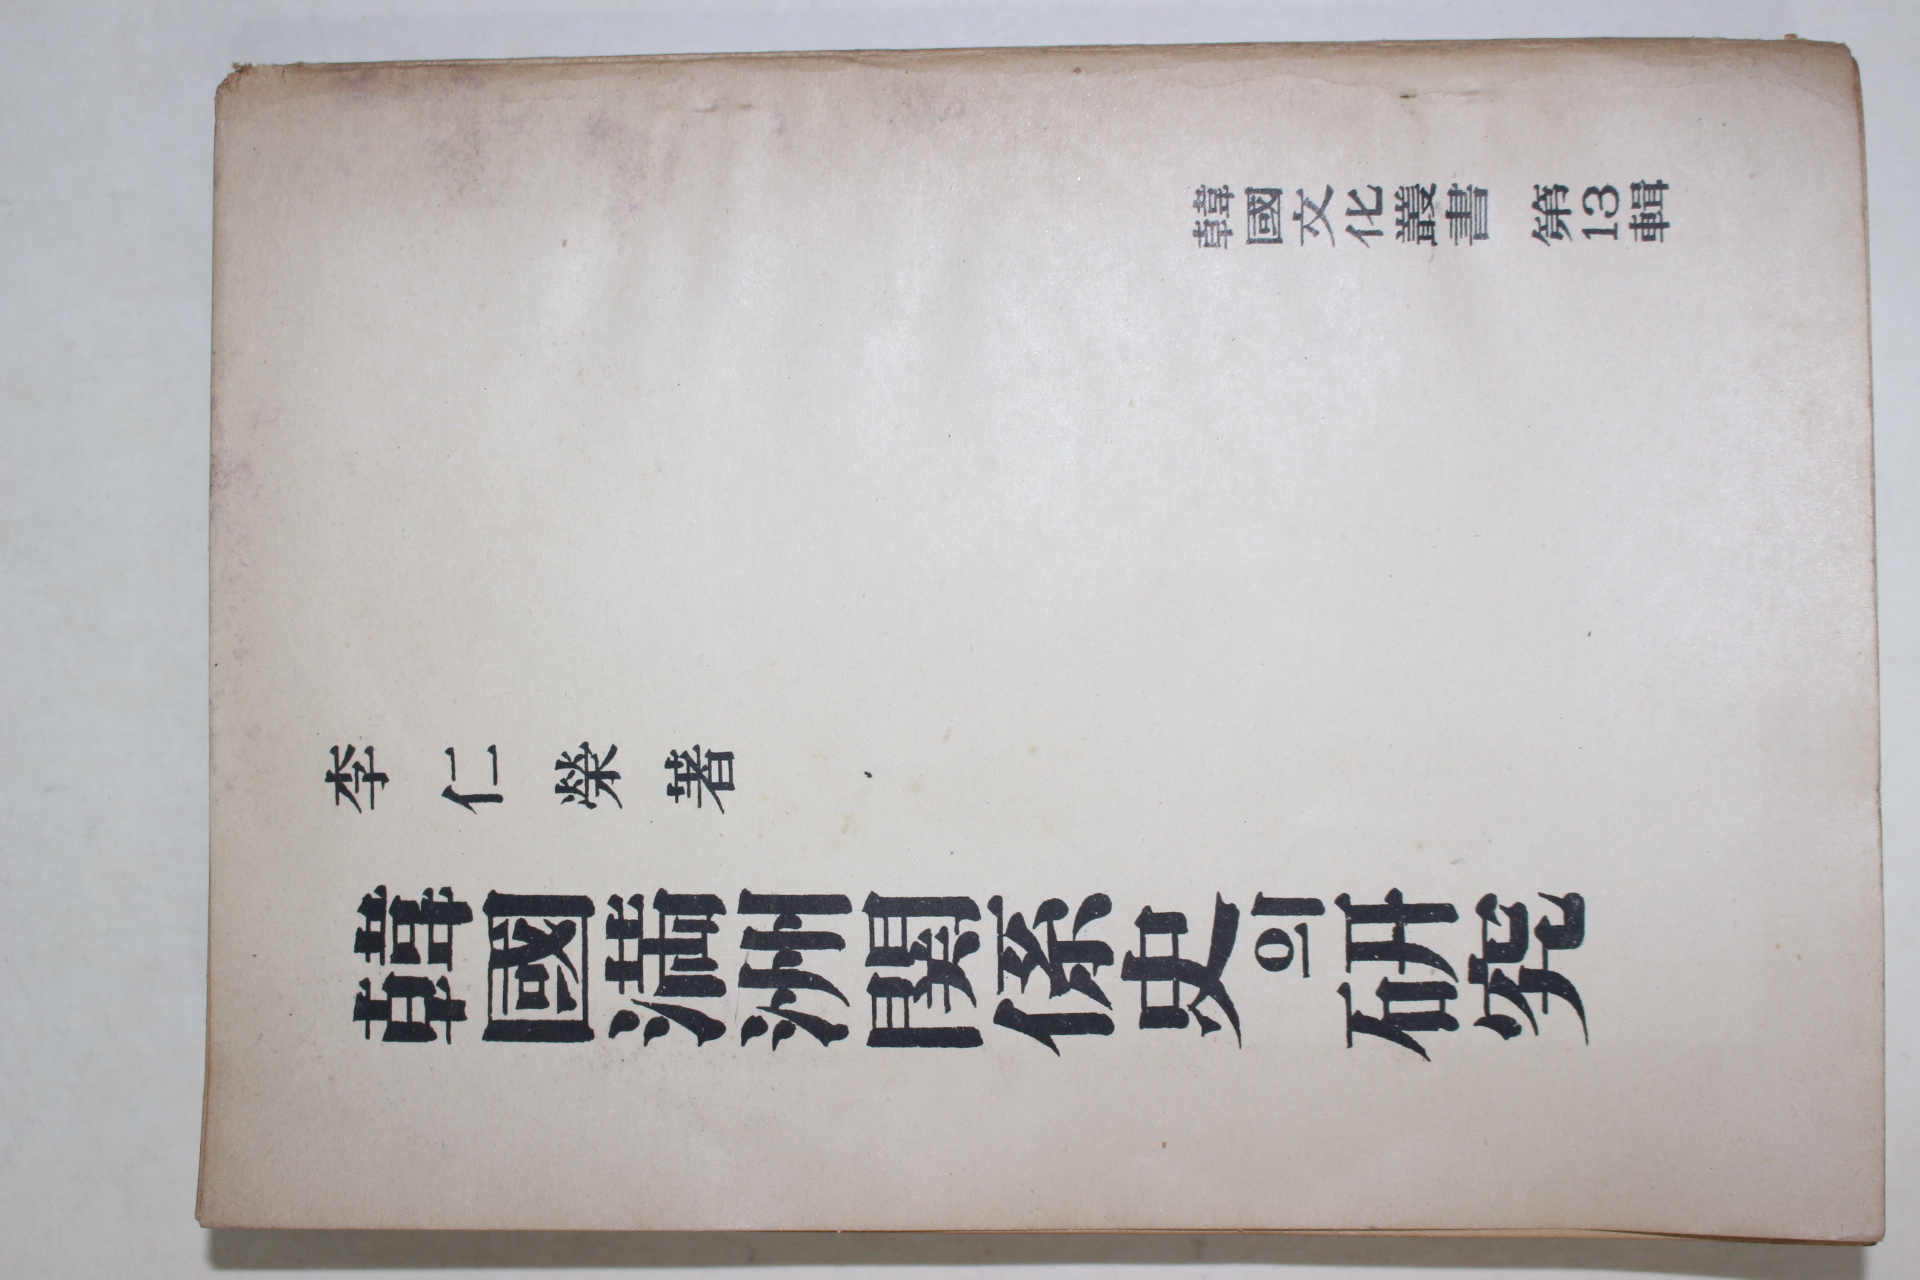 韓國文化叢書 第13輯
李仁榮著
韓國満洲関係史의研究